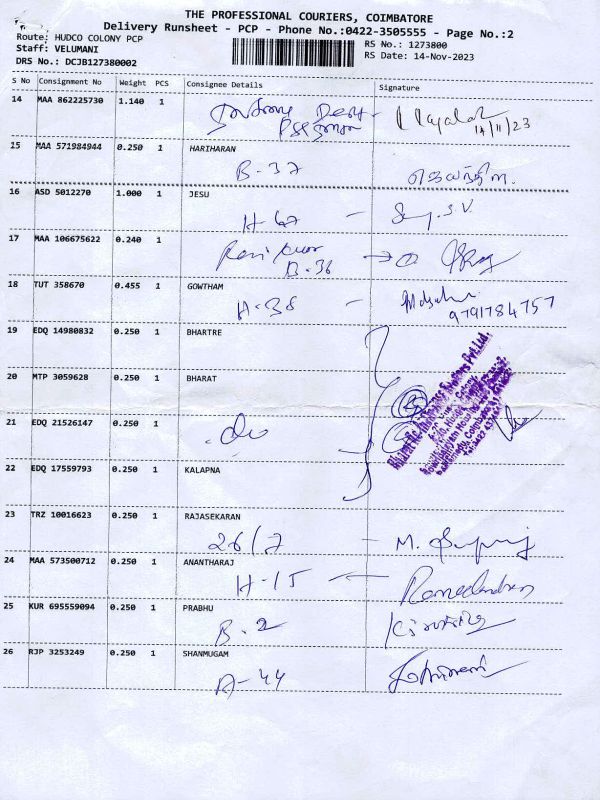 THE PROFESSIONAL COURIERS, COIMBATORE
Delivery Runsheet - PCP - Phone No.:0422-3505555 - Page No.:2
Route: HUDCO COLONY PCP
RS No.: 1273800
Staff: VELUMANI
RS Date: 14-Nov-2023
DRS No.: DCJB127380002
S No Consignment No Weight PCS Consignee Details Signature
14 MAA 862225730 1.140 1
14/11/23
15 MAA 571984944 0.250 1 HARIHARAN
B-37
16 ASD 5012270 1.000 1 JESU
H-67 - S.V.
17 MAA 106675622 0.240 1
B-36
18 TUT 358670 0.455 1 GOWTHAM
H-38 -
9791784757
19 EDQ 14980832 0.250 1 BHARTRE
20 MTP 3059628 0.250 1 BHARAT
21 EDQ 21526147 0.250 1
do
22 EDQ 17559793 0.250 1 KALAPNA
23 TRZ 10016623 0.250 1 RAJASEKARAN
26/7 - M.
24 MAA 573500712 0.250 1 ANANTHARAJ
H-15 Ramachandran
25 KUR 695559094 0.250 1 PRABHU
B-2
26 RJP 3253249 0.250 1 SHANMUGAM
A-44